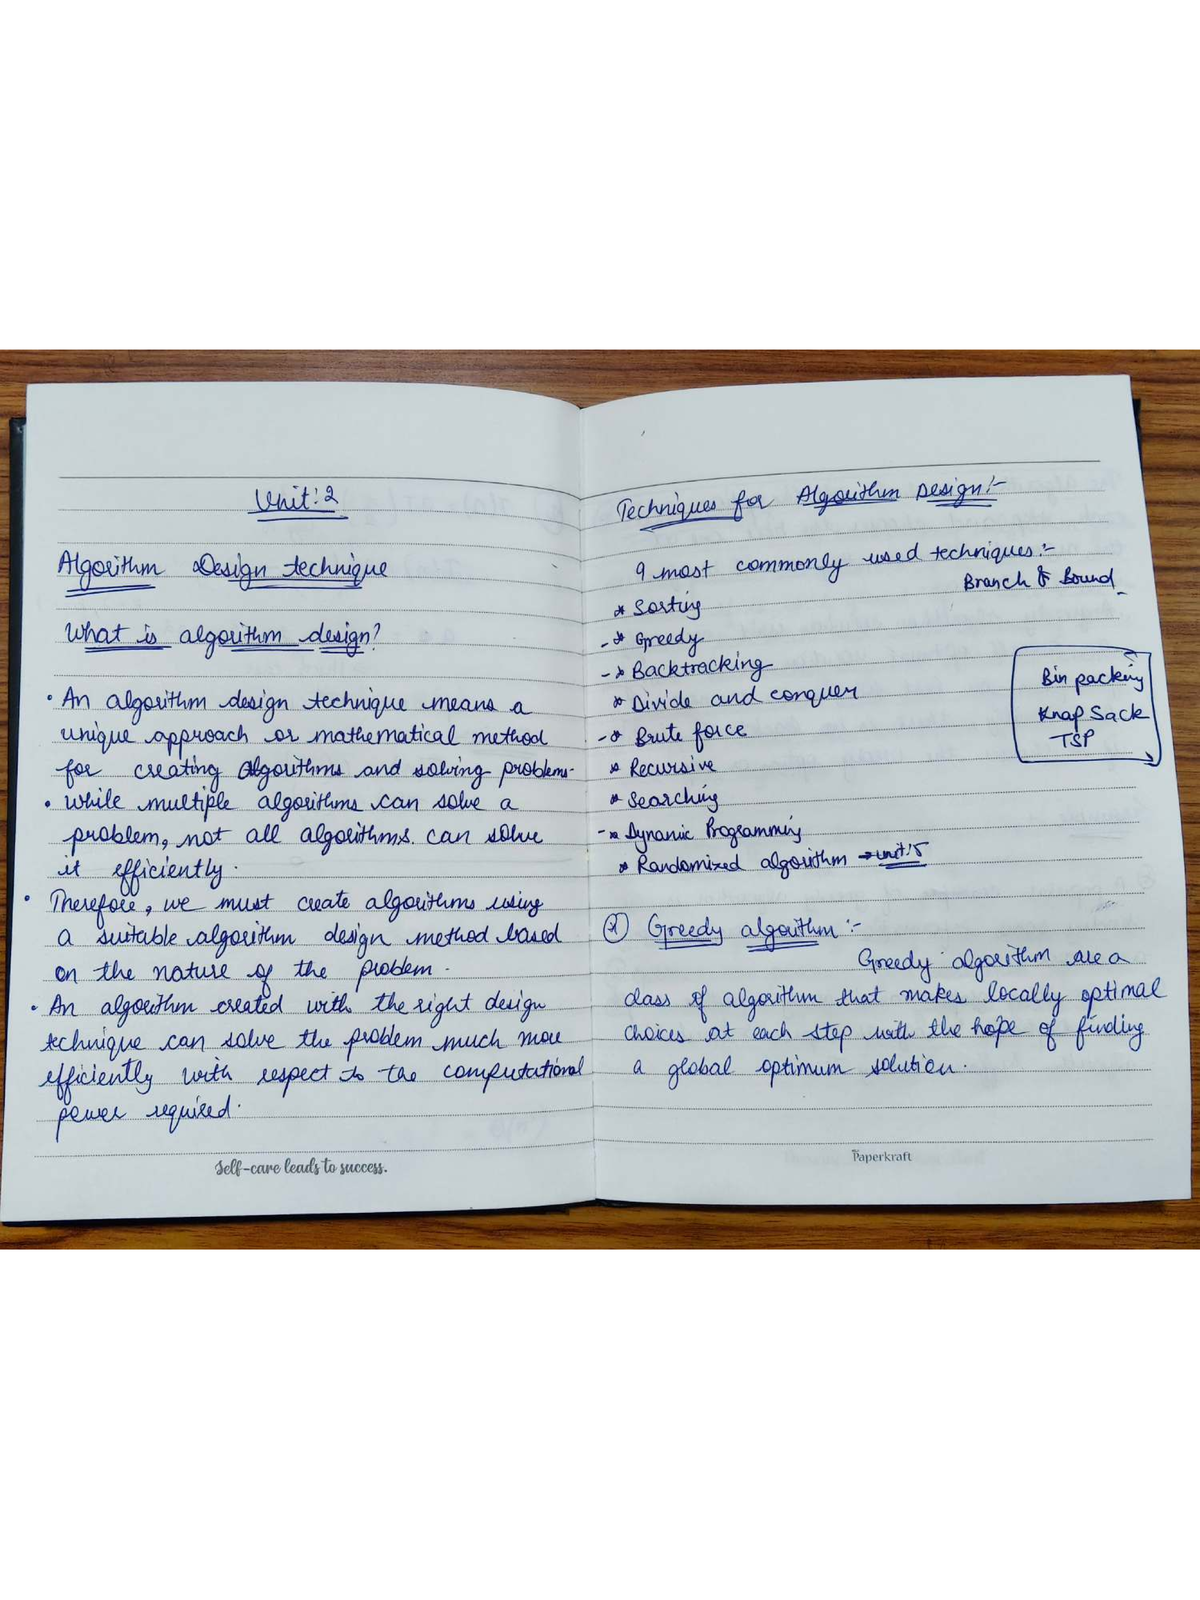 Unit: 2
Algorithm Design technique
What is algorithm design?
• An algorithm design technique means a
unique approach or mathematical method
for creating algorithms and solving problems.
• While multiple algorithms can solve a
problem, not all algorithms can solve
it efficiently.
• Therefore, we must create algorithms using
a suitable algorithm design method based
on the nature of the problem.
• An algorithm created with the right design
technique can solve the problem much more
efficiently with respect to the computational
power required.
Self-care leads to success.
Techniques for Algorithm Design:-
9 most commonly used techniques:-
Branch & Bound
* Sorting
-* Greedy
-* Backtracking
* Divide and conquer
-* Brute force
* Recursive
* Searching
-* Dynamic Programming
* Randomized algorithm → unit: 5
Bin packing
Knap Sack
TSP
* Greedy algorithm:-
Greedy algorithm are a
class of algorithm that makes locally optimal
choices at each step with the hope of finding
a global optimum solution.
Paperkraft